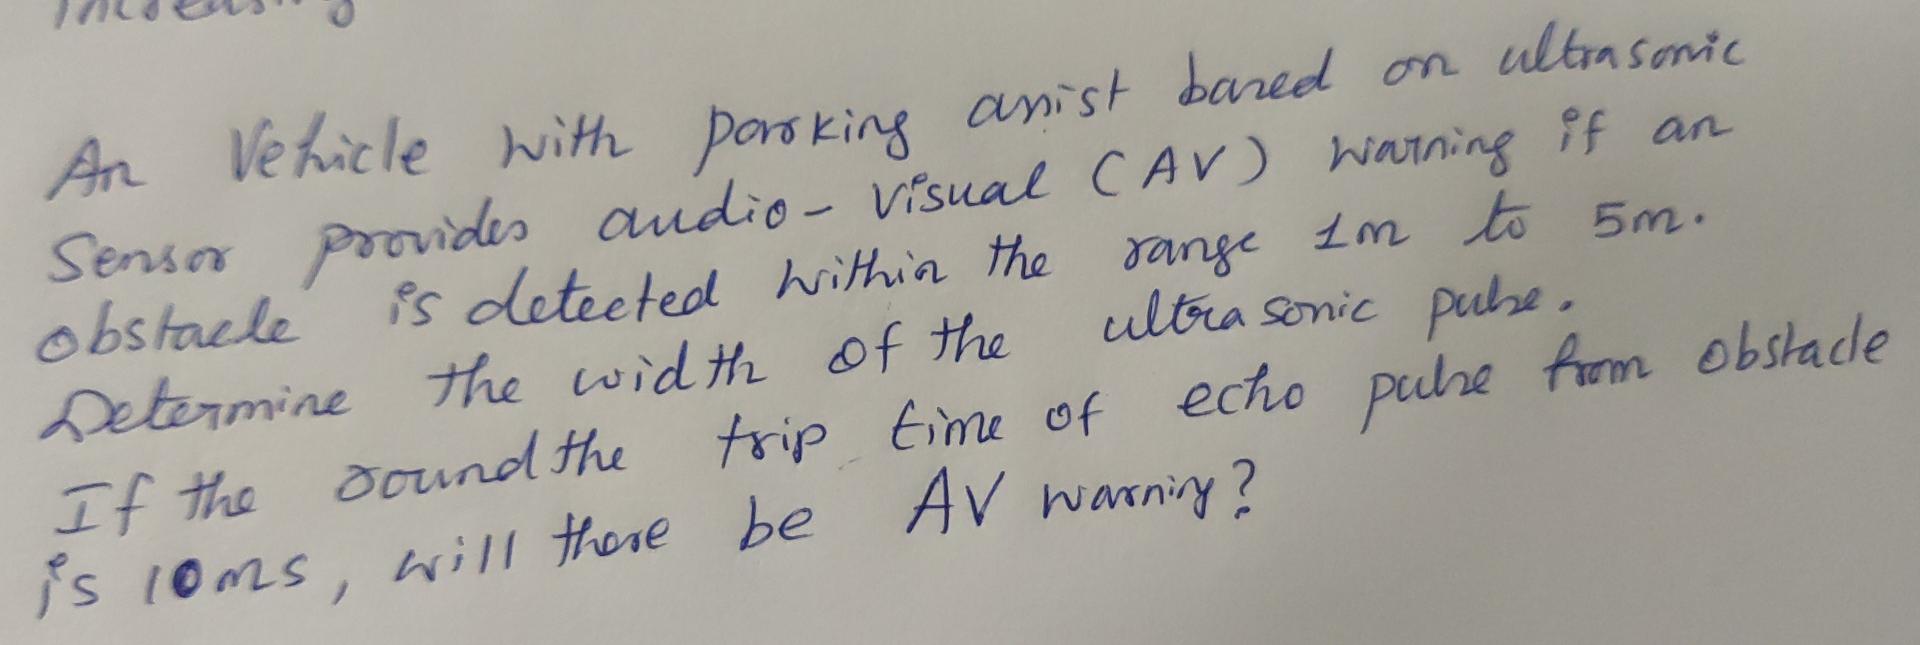 An Vehicle with parking assist based on ultrasonic
Sensor provides audio-visual (AV) warning if an
obstacle is detected within the range 1m to 5m.
Determine the width of the ultrasonic pulse.
If the round the trip time of echo pulse from obstacle
is 10ms, will there be AV warning?